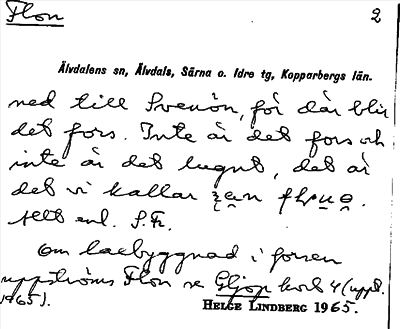 Flon 2
Älvdalens sn, Älvdals, Särna o. Idre tg, Kopparbergs län.
ned till Svenön, för där blir
det fors. Inte är det fors och
inte är det lugnt, det är
det vi kallar
allt enl. S.Fr.
Om laxbyggnad i forsen
uppströms Flon se Glöp kort 4 (uppt.
1965).
HELGE LINDBERG 1965.